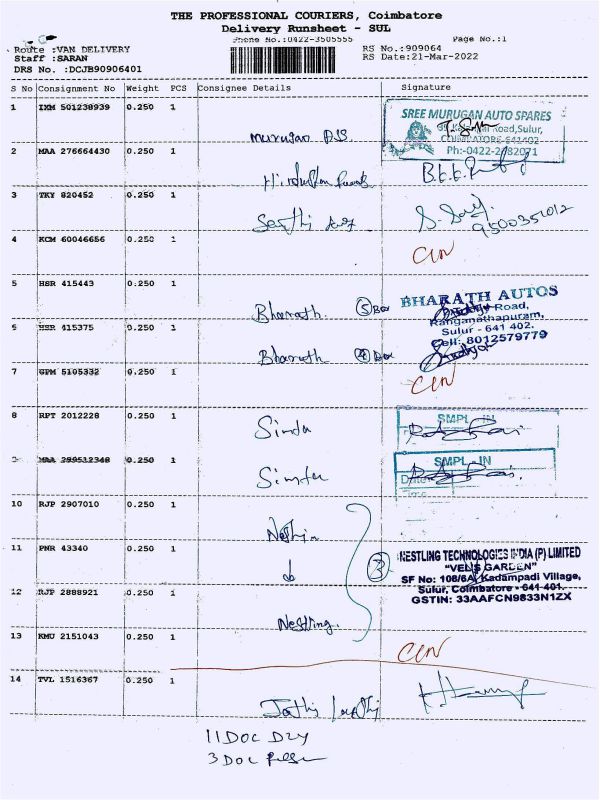 THE PROFESSIONAL COURIERS, Coimbatore
Delivery Runsheet - SUL
Phone No.:0422-3505555 Page No.:1
Route :VAN DELIVERY RS No.:909064
Staff :SARAN RS Date:21-Mar-2022
DRS No. :DCJB90906401
S No Consignment No Weight PCS Consignee Details Signature
1 IXM 501238939 0.250 1
SREE MURUGAN AUTO SPARES
Road,Sulur,
COIMBATORE-641402
Ph:-0422-2682071
Murugan
2 MAA 276664430 0.250 1
Hindustan
3 TKY 820452 0.250 1
Sakthi
4 KCM 60046656 0.250 1
CLN
5 HSR 415443 0.250 1
Bharath 5 Box
BHARATH AUTOS
Road,
Ranganathapuram,
Sulur - 641 402.
Cell: 8012579779
6 HSR 415375 0.250 1
Bharath 4 Box
7 GPM 5105332 0.250 1
CLN
8 RPT 2012228 0.250 1
Simta
SMPL - IN
9 MAA 299512348 0.250 1
Simta
SMPL - IN
Date
Time
10 RJP 2907010 0.250 1
11 PNR 43340 0.250 1
3
NESTLING TECHNOLOGIES INDIA (P) LIMITED
"VELS GARDEN"
SF No: 108/6A, Kadampadi Village,
Sulur, Coimbatore - 641 401.
GSTIN: 33AAFCN9833N1ZX
12 RJP 2888921 0.250 1
Nestling.
13 KMU 2151043 0.250 1
CLN
14 TVL 1516367 0.250 1
11 DOC DLY
3 DOC